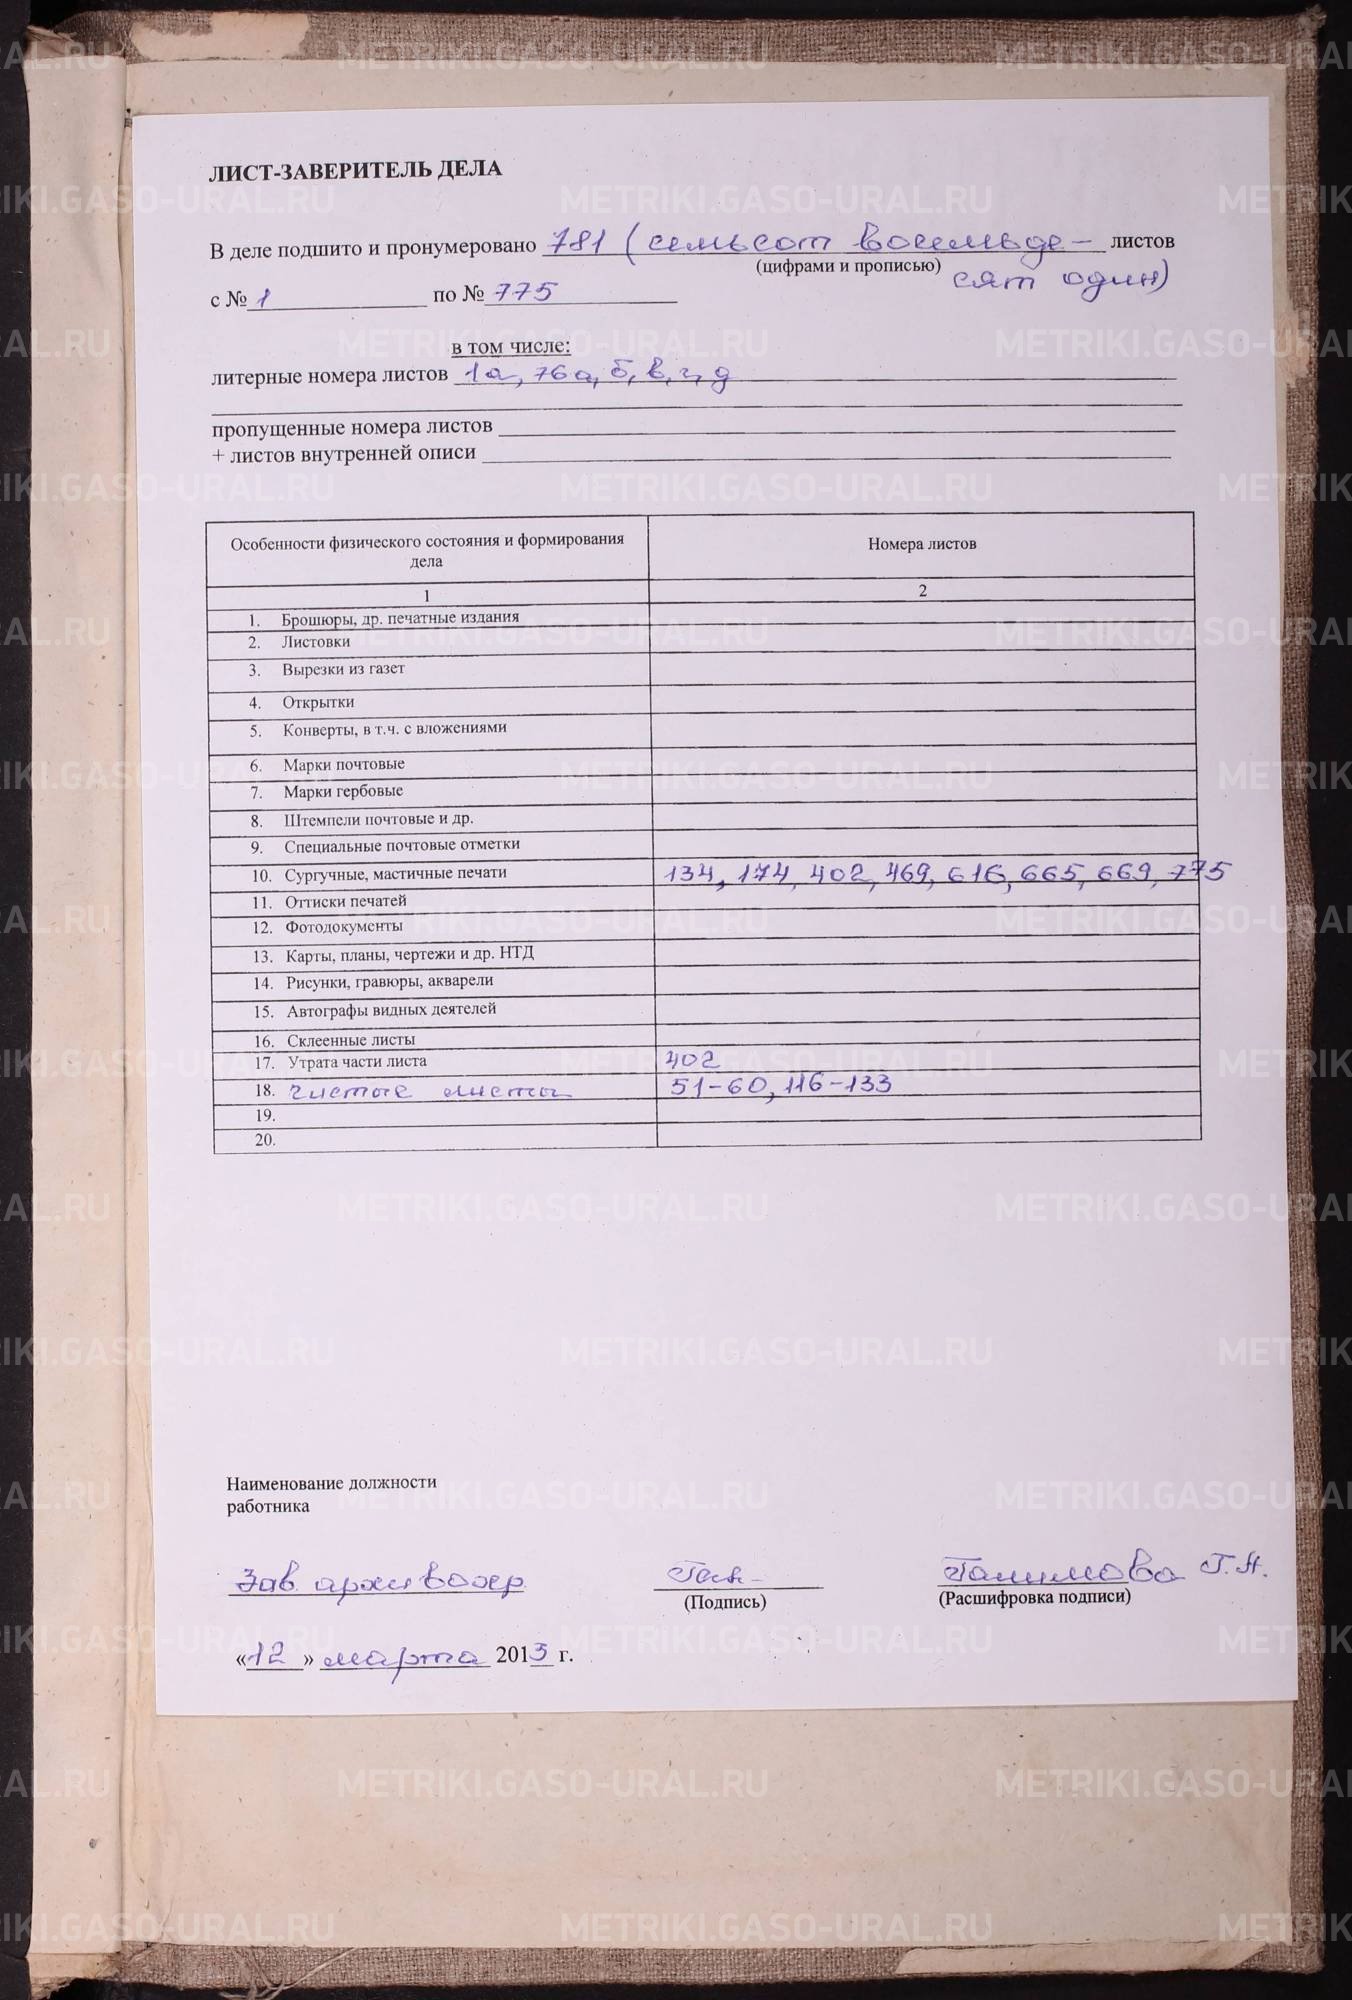 ЛИСТ-ЗАВЕРИТЕЛЬ ДЕЛА
В деле подшито и пронумеровано 781 (семьсот восемьде- листов
(цифрами и прописью) сят один)
с № 1 по № 775
в том числе:
литерные номера листов 1а, 76а, б, в, г, д
пропущенные номера листов
+ листов внутренней описи
Особенности физического состояния и формирования дела Номера листов
1 2
1. Брошюры, др. печатные издания
2. Листовки
3. Вырезки из газет
4. Открытки
5. Конверты, в т.ч. с вложениями
6. Марки почтовые
7. Марки гербовые
8. Штемпели почтовые и др.
9. Специальные почтовые отметки
10. Сургучные, мастичные печати 134, 174, 402, 469, 616, 665, 669, 775
11. Оттиски печатей
12. Фотодокументы
13. Карты, планы, чертежи и др. НТД
14. Рисунки, гравюры, акварели
15. Автографы видных деятелей
16. Склеенные листы
17. Утрата части листа 402
18. Чистые листы 51-60, 116-133
19.
20.
Наименование должности
работника
Зав. архивохр. Галимова Г.Н.
(Подпись) (Расшифровка подписи)
«12» марта 2013 г.
METRIKI.GASO-URAL.RU